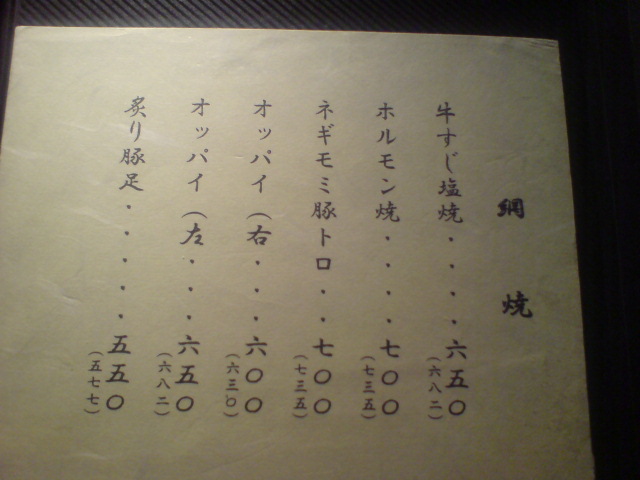 網焼
牛すじ塩焼・・・・六五〇
(六八二)
ホルモン焼・・・・七〇〇
(七三五)
ネギモミ豚トロ・・七〇〇
(七三五)
オッパイ(右・・・六〇〇
(六三〇)
オッパイ(左・・・六五〇
(六八二)
炙り豚足・・・・・五五〇
(五七七)